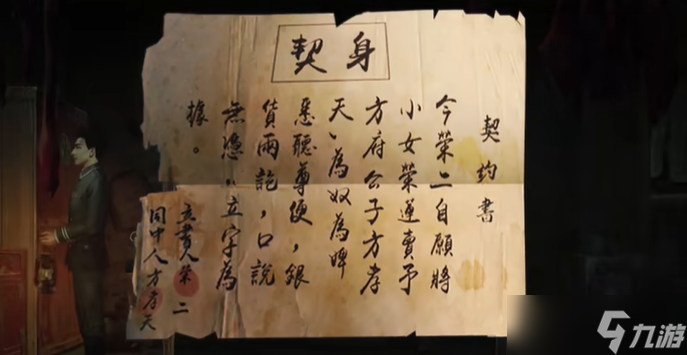 身契
契約書
今榮二自願將
小女榮蓮賣予
方府公子方孝
天、為奴為婢
悉聽尊便,銀
貨兩訖,口說
無憑,立字為
據。
立書人榮二
同中人方孝天
九游